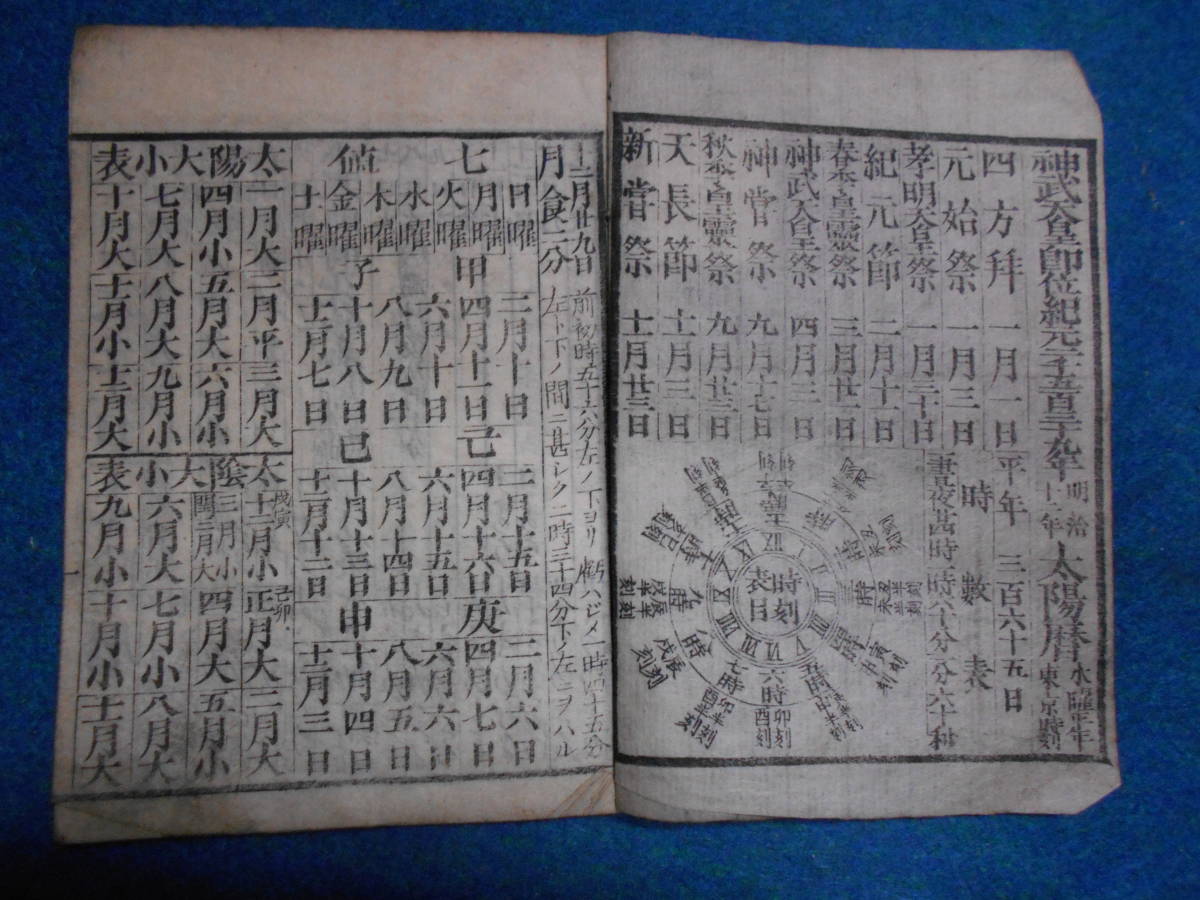 神武天皇即位紀元二千五百三十九年 明治十二年 太陽暦 水曜平年 東京時刻
四方拜 一月一日 平年 三百六十五日
元始祭 一月三日 時數表
孝明天皇祭 一月三十日 晝夜廿四時 一時六十分 一分六十秒
紀元節 二月十一日
春季皇靈祭 三月廿一日
神武天皇祭 四月三日
神嘗祭 九月十七日
秋季皇靈祭 九月廿三日
天長節 十一月三日
新嘗祭 十一月廿三日
時刻表目
I II III IIII V VI VII VIII IX X XI XII
六時 卯刻 酉刻
七時
十二月廿九日 前初時五十六分左ノ下ヨリ虧ハジメ一時四十五分
月食二分 左ト下ノ間ニ甚シク二時三十四分下ノ左ニヲハル
七値
日曜 二月十日 二月十五日 二月六日
月曜 甲 四月十一日 己 四月十六日 庚 四月七日
火曜 六月十日 六月十五日 六月六日
水曜 八月九日 八月十四日 八月五日
木曜 子 十月八日 巳 十月十三日 申 十月四日
金曜
土曜 十二月七日 十二月十二日 十二月三日
太陽大小表
一月大 二月平 三月大
四月小 五月大 六月小
七月大 八月大 九月小
十月大 十一月小 十二月大
太陰大小表
戊寅 十二月小 己卯 正月大 二月大
三月小 閏三月大 四月大 五月小
六月大 七月小 八月大
九月大 十月小 十一月大